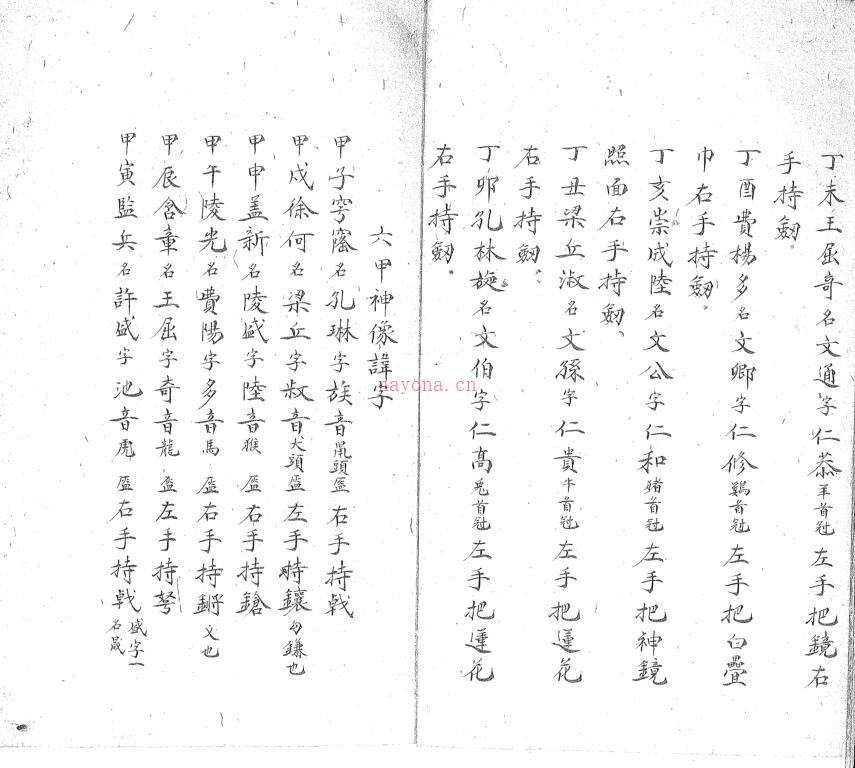 丁未王屈奇名文通字仁恭羊首冠左手把鏡右
手持劔。
丁酉費楊多名文卿字仁修鷄首冠左手把白疊
巾右手持劔。
丁亥崇成陸名文公字仁和豬首冠左手把神鏡
照面右手持劔、
丁丑梁丘淑名文孫字仁貴牛首冠左手把蓮花
右手持劔。
丁卯孔林旋名文伯字仁高兎首冠左手把蓮花
右手持劔。
六甲神像諱字
甲子穹窿名孔琳字族音鼠頭盔右手持戟
甲戌徐何名梁丘字叔音犬頭盔左手持鑲勾鎌也
甲申盖新名陵盛字陸音猴盔右手持鎗
甲午陵光名費陽字多音馬盔右手持鏘义也
甲辰含章名王屈字奇音龍盔左手持弩
甲寅監兵名許盛字池音虎盔右手持戟盛字一名晟
nayona.cn